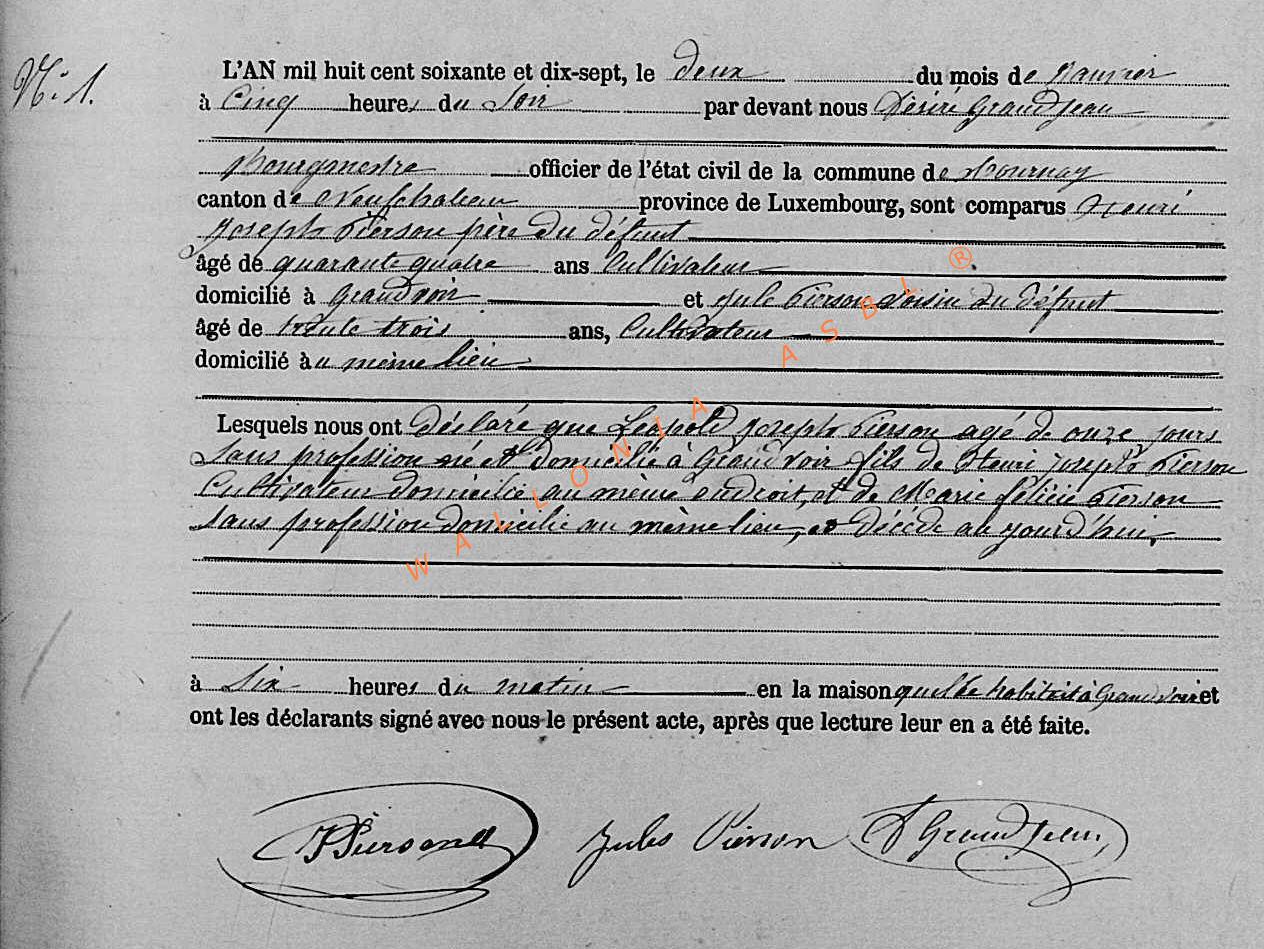 N° 1.
L'AN mil huit cent soixante et dix-sept, le deux du mois de Janvier
à Cinq heures du Soir par devant nous Désiré Grandjean
Bourgmestre officier de l'état civil de la commune de Tournay
canton de Neufchateau province de Luxembourg, sont comparus Henri
Joseph Pierson père du défunt
âgé de quarante quatre ans Cultivateur
domicilié à Grandvoir et Jule Pierson voisin du défunt
âgé de trente trois ans, Cultivateur
domicilié au même lieu
Lesquels nous ont déclaré que Léopold Joseph Pierson agé de onze jours
Sans profession né et domicilié à Grandvoir fils de Henri Joseph Pierson
Cultivateur domicilié au même endroit, et de Marie Félicie Pierson
Sans profession domicilié au même lieu, est Décédé aujourd'hui,
à Six heures du matin en la maison quelle habitait à Grandvoir et
ont les déclarants signé avec nous le présent acte, après que lecture leur en a été faite.
Jules Pierson
D Grandjean
WALLONIA ASBL ®